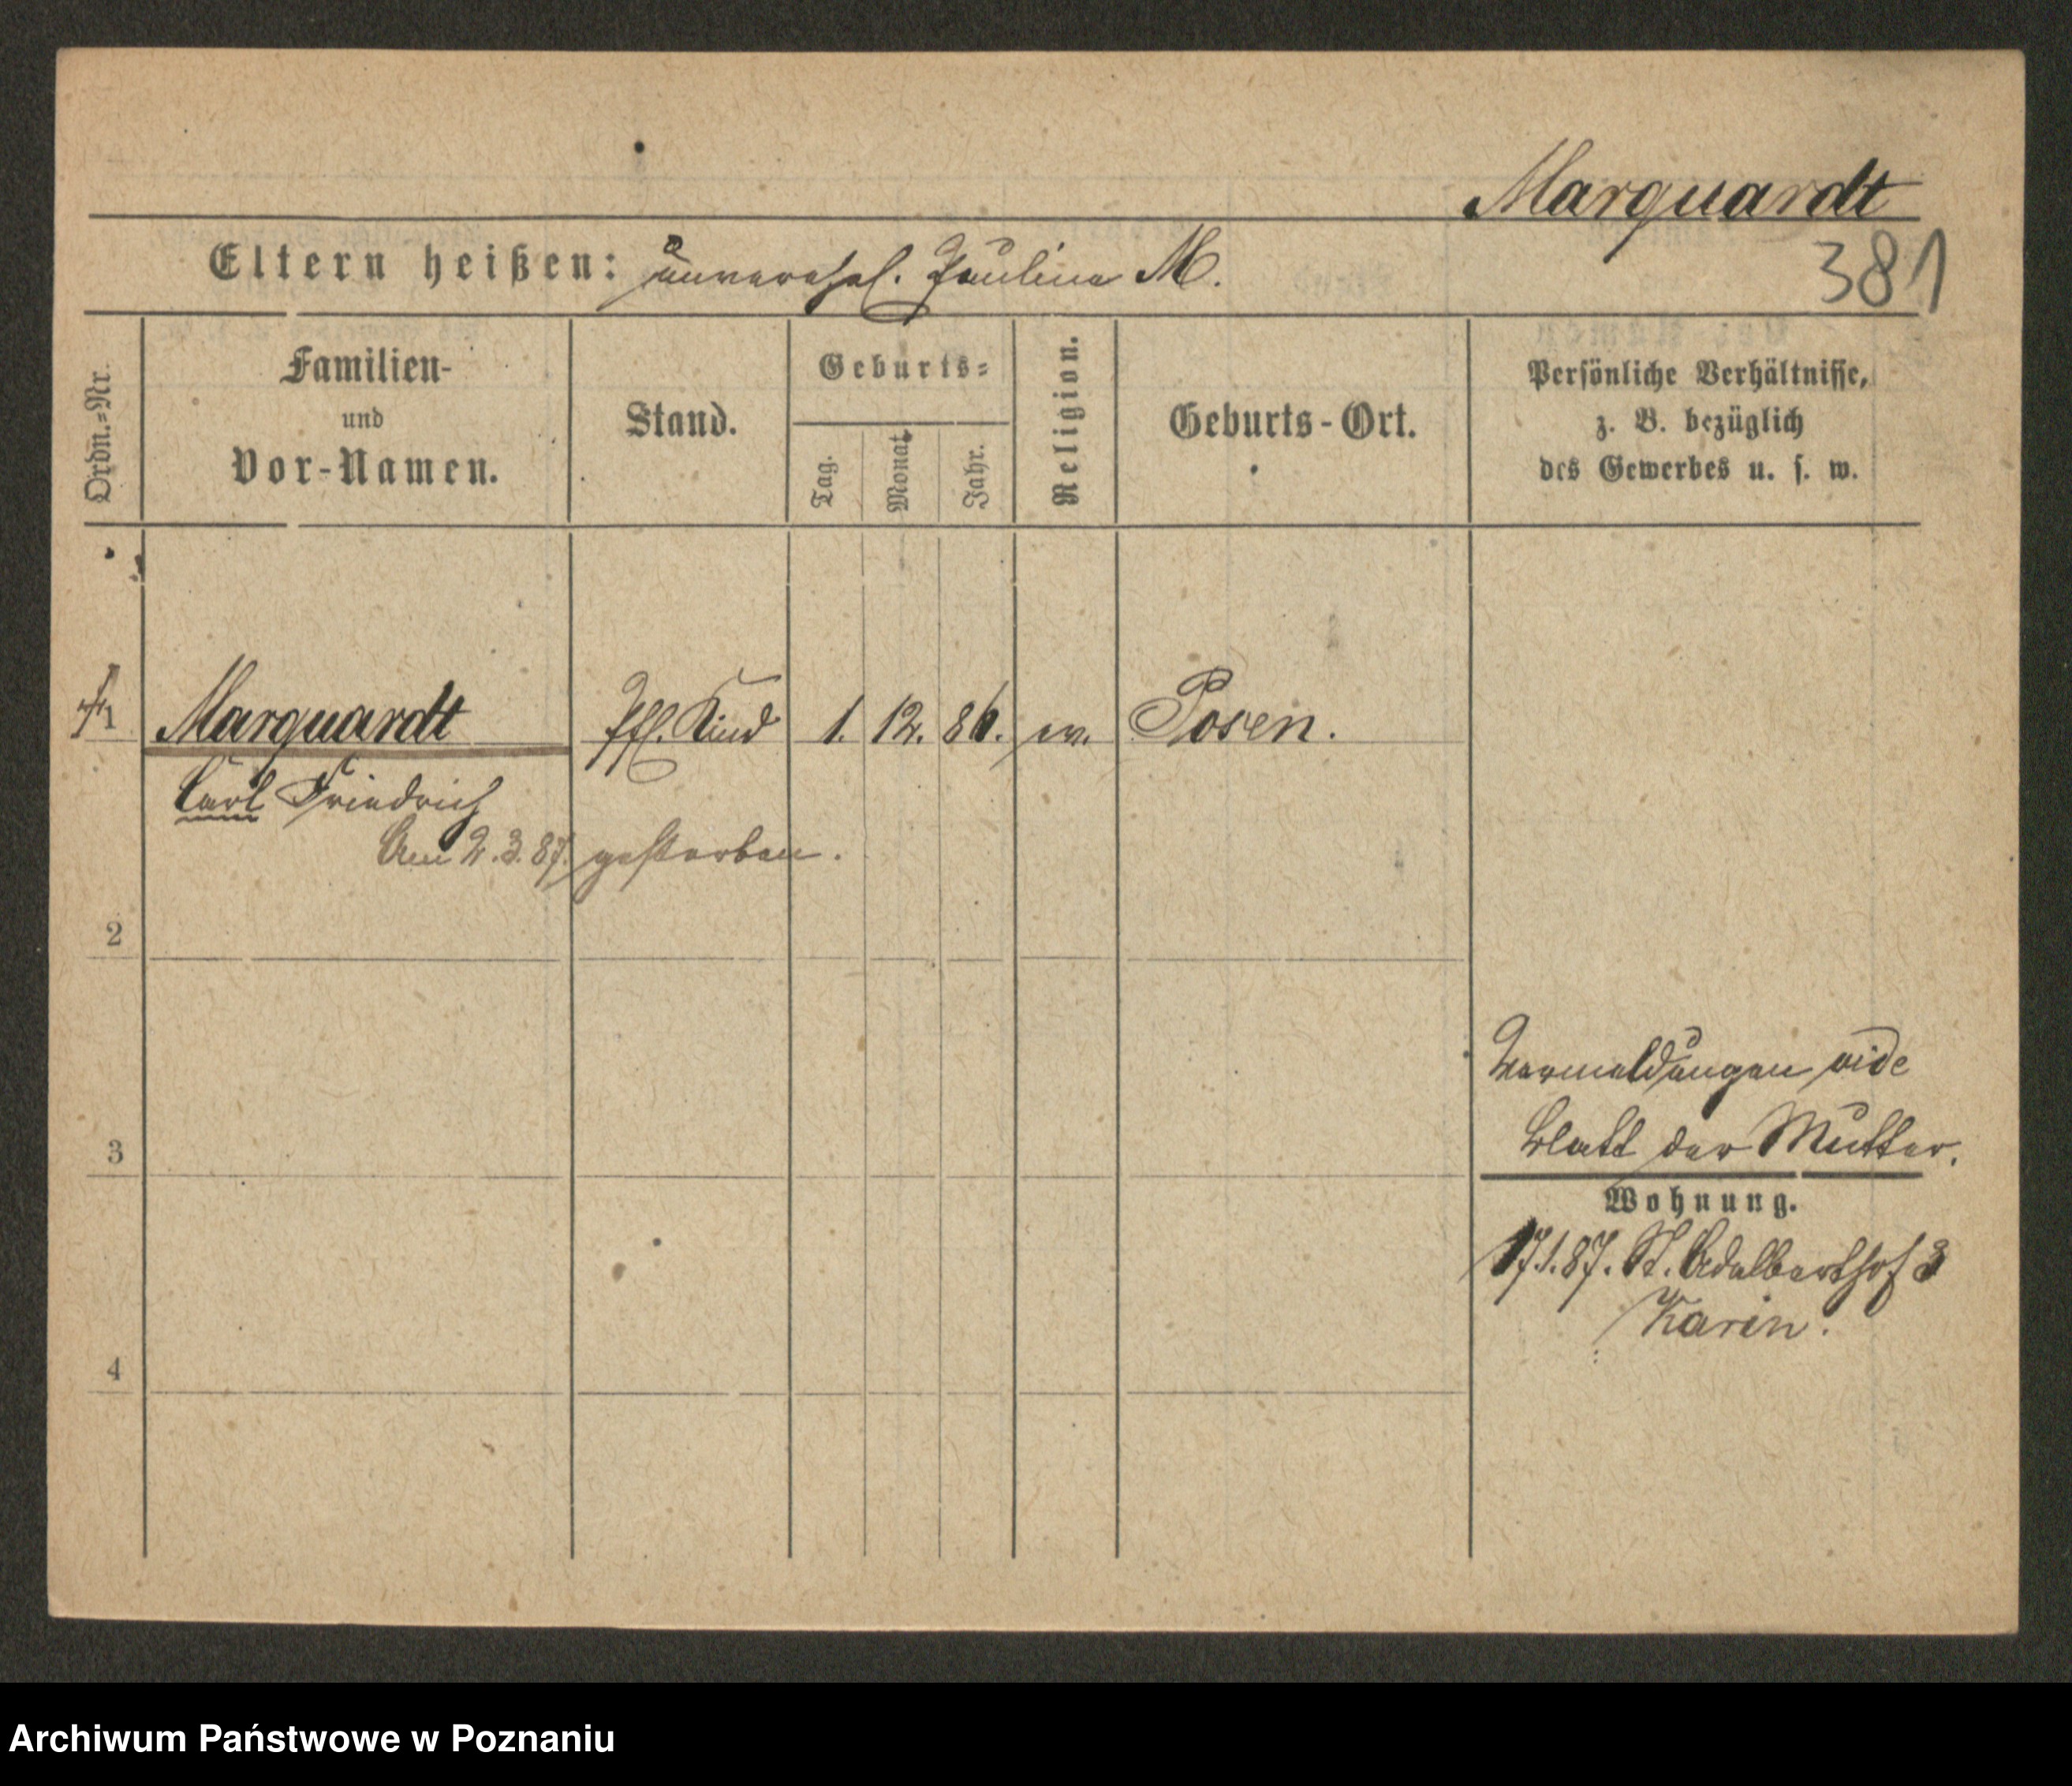 Marquardt
381
Eltern heißen: unverehel. Pauline M.
Ordn.-Nr.
Familien-
und
Vor-Namen.
Stand.
Geburts-
Tag.
Monat
Jahr.
Religion.
Geburts-Ort.
Persönliche Verhältnisse,
z. B. bezüglich
des Gewerbes u. s. w.
1 Marquardt Pfl. Kind 1. 12. 86. ev. Posen.
Carl Friedrich
Am 2.3.87. gestorben.
2
3
4
Vermeldungen vide
Blatt der Mutter.
Wohnung.
17.1.87. St. Adalberthof 3
Karin.
Archiwum Państwowe w Poznaniu